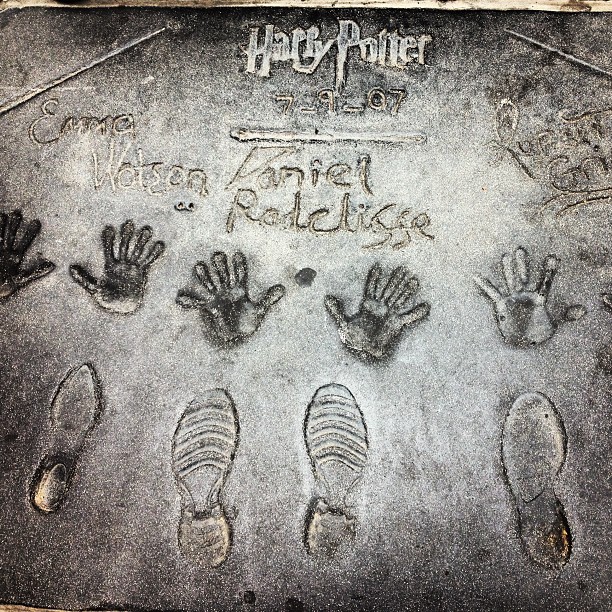 Harry Potter
7-9-07
Emma
Watson
Daniel
Radcliffe
Rupert